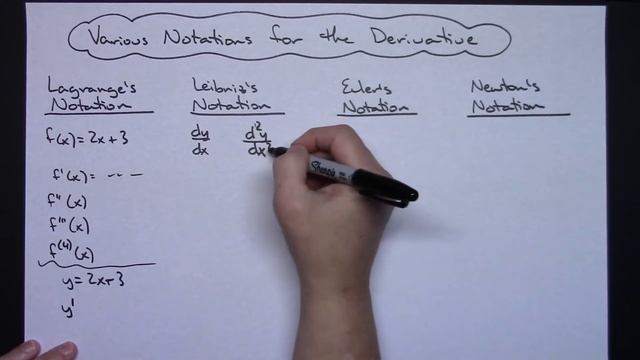 Various Notations for the Derivative
Lagrange's
Notation
f(x) = 2x+3
f'(x) = ---
f''(x)
f'''(x)
f⁽⁴⁾(x)
y = 2x+3
y'
Leibniz's
Notation
dy/dx d²y/dx²
Euler's
Notation
Newton's
Notation
Sharpie